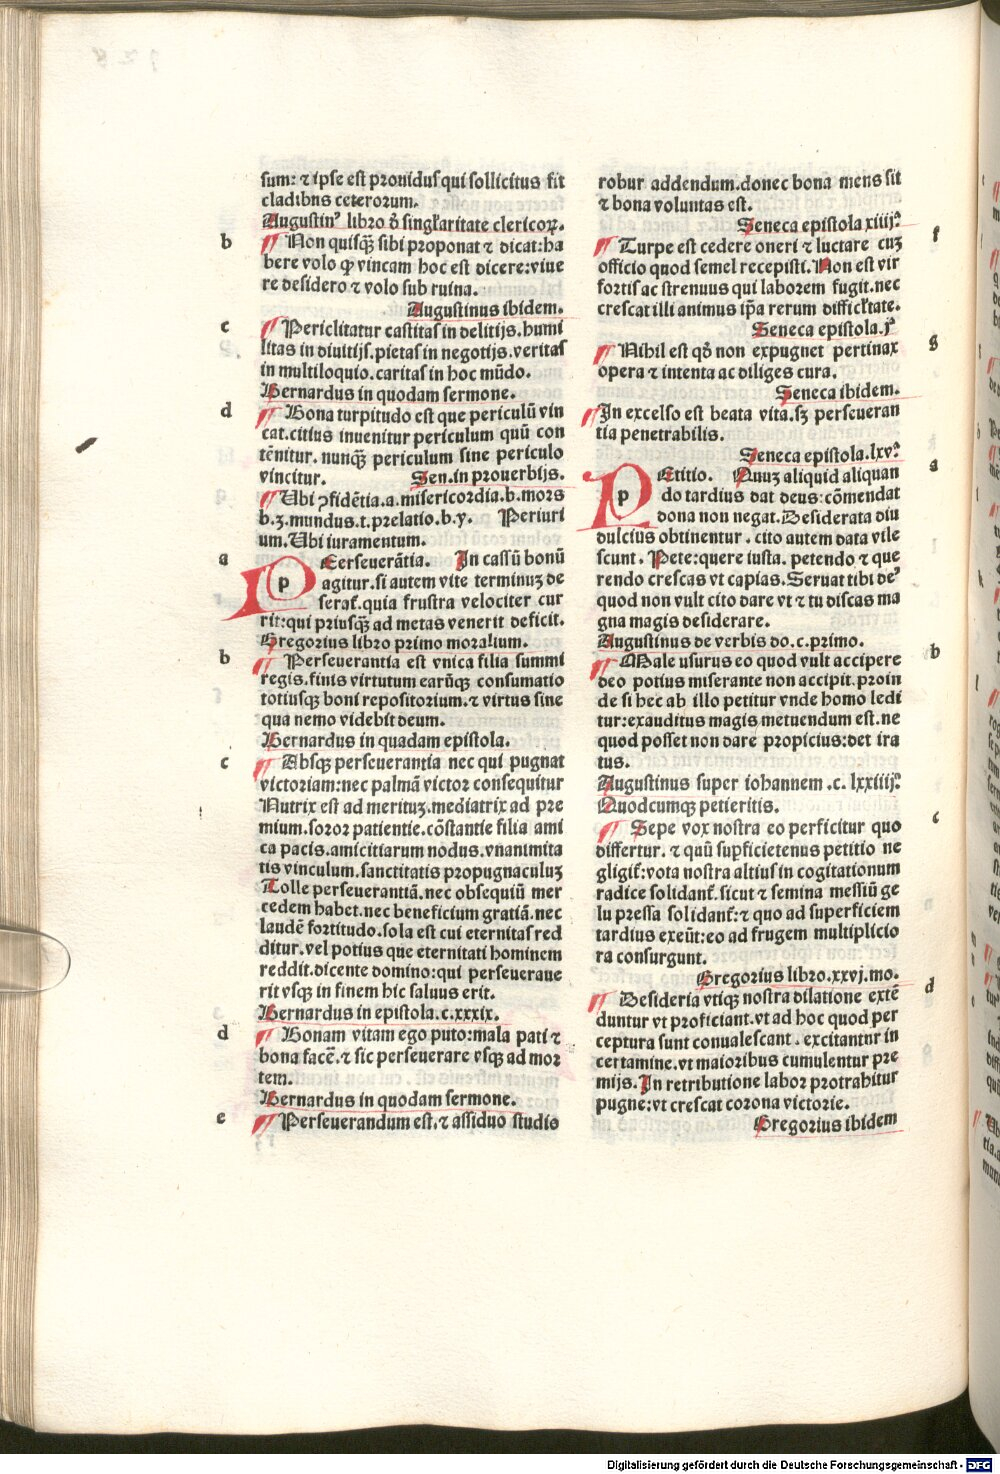 sum: ⁊ ipse est prouidus qui sollicitus fit
cladibns ceterorum.
Augustinꝰ libro d̕ singl'aritate clericoꝝ.
b
¶ Non quisq̄ꝫ sibi proponat ⁊ dicat:ha
bere volo ꝙ vincam hoc est dicere:viue
re desidero ⁊ volo sub ruina.
Augustinus ibidem.
c
¶ Periclitatur castitas in delitijs.humi
litas in diuitijs.pietas in negotijs.veritas
in multiloquio.caritas in hoc mūdo.
Bernardus in quodam sermone.
d
¶ Bona turpitudo est que periculū vin
cat.citius inuenitur periculum quū con
tēnitur.nunqꝫ periculum sine periculo
vincitur. Sen.in prouerbijs.
¶ Ubi ꝯfidētia.a.misericordia.b.mors
b.ꝫ.mundus.t.prelatio.b.y. Periuri
um.Ubi iuramentum.
a
p
Eerseuerātia. In cassū bonū
agitur.si autem vite terminuꝫ de
serat̕.quia frustra velociter cur
rit:qui priusqꝫ ad metas venerit deficit.
Gregorius libro primo moralium.
b
¶ Perseuerantia est vnica filia summi
regis.finis virtutum earūqꝫ consumatio
totiusqꝫ boni repositorium.⁊ virtus sine
qua nemo videbit deum.
Bernardus in quadam epistola.
c
¶ Absqꝫ perseuerantia nec qui pugnat
victoriam:nec palmā victor consequitur
Nutrix est ad merituꝫ.mediatrix ad pre
mium.soror patientie.cōstantie filia ami
ca pacis.amicitiarum nodus.vnanimita
tis vinculum.sanctitatis propugnaculuꝫ
Tolle perseuerantiā.nec obsequiū mer
cedem habet.nec beneficium gratiā.nec
laudē fortitudo.sola est cui eternitas red
ditur.vel potius que eternitati hominem
reddit.dicente domino:qui perseueraue
rit vsqꝫ in finem hic saluus erit.
Bernardus in epistola.c.xxxix.
d
¶ Bonam vitam ego puto:mala pati ⁊
bona facē.⁊ sic perseuerare vsqꝫ ad mor
tem.
Bernardus in quodam sermone.
e
¶ Perseuerandum est.⁊ assiduo studio
robur addendum.donec bona mens sit
⁊ bona voluntas est.
Seneca epistola xiiij.ª
f
¶ Turpe est cedere oneri ⁊ luctare cuꝫ
officio quod semel recepisti.Non est vir
fortis ac strenuus qui laborem fugit.nec
crescat illi animus ip̄a rerum difficl'tate.
Seneca epistola.jª
g
¶ Nihil est qd̕ non expugnet pertinax
opera ⁊ intenta ac diliges cura.
Seneca ibidem.
¶In excelso est beata vita.sꝫ perseueran
tia penetrabilis.
Seneca epistola.lxv.ª
a
p
Etitio. Quuꝫ aliquid aliquan
do tardius dat deus:cōmendat
dona non negat.Desiderata diu
dulcius obtinentur.cito autem data vile
scunt.Pete:quere iusta.petendo ⁊ que
rendo crescas vt capias.Seruat tibi deꝰ
quod non vult cito dare vt ⁊ tu discas ma
gna magis desiderare.
Augustinus de verbis do.c.primo.
b
¶ Male usurus eo quod vult accipere
deo potius miserante non accipit.proin
de si hec ab illo petitur vnde homo ledi
tur:exauditus magis metuendum est.ne
quod posset non dare propicius:det ira
tus.
Augustinus super iohannem.c.lxxiiij.ª
Quodcumqꝫ petieritis.
c
¶ Sepe vox nostra eo perficitur quo
differtur.⁊ quū sup̄ficietenus petitio ne
gligit̕:vota nostra altius in cogitationum
radice solidant̕.sicut ⁊ semina messiū ge
lu pressa solidant̕:⁊ quo ad superficiem
tardius exeūt:eo ad frugem multiplicio
ra consurgunt.
Gregorius libro.xxvj.mo.
d
¶ Desideria vtiqꝫ nostra dilatione extē
duntur vt proficiant.vt ad hoc quod per
ceptura sunt conualescant.excitantur in
certamine.vt maioribus cumulentur pre
mijs.In retributione labor protrahitur
pugne:vt crescat corona victorie.
Gregorius ibidem
Digitalisierung gefördert durch die Deutsche Forschungsgemeinschaft - DFG